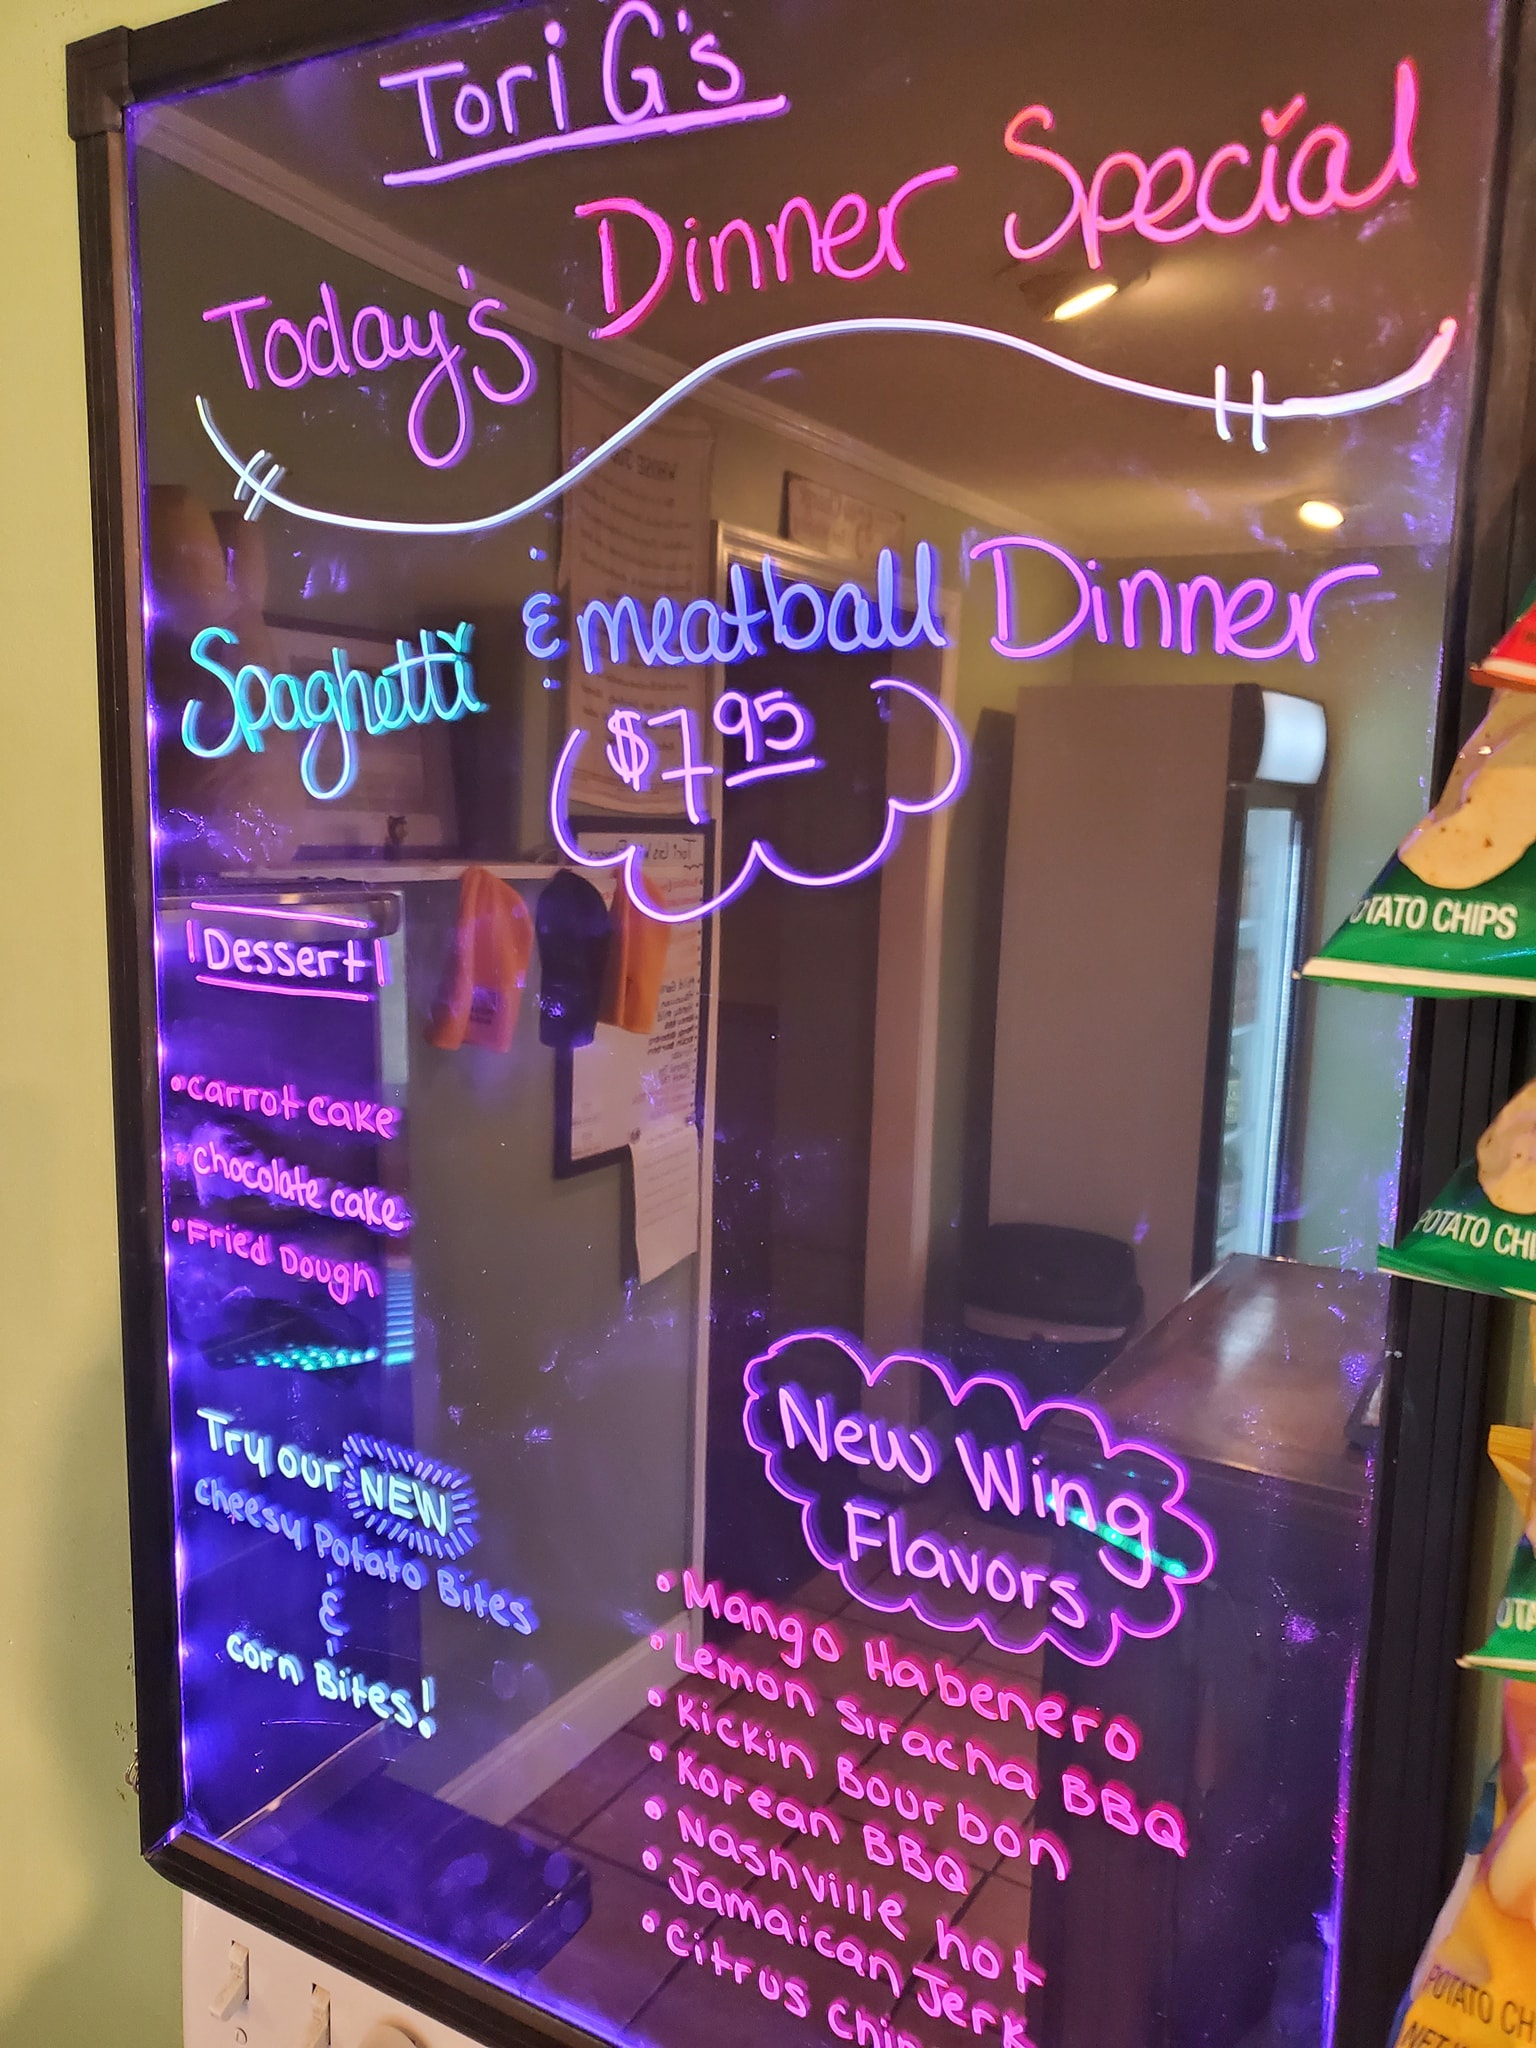 Tori G's
Today's Dinner Special
Spaghetti & meatball Dinner
$7.95
Dessert
• carrot cake
• chocolate cake
• Fried Dough
Try our NEW
cheesy Potato Bites
&
corn Bites!
New Wing
Flavors
• Mango Habenero
• Lemon Siracha BBQ
• Kickin Bourbon
• Korean BBQ
• Nashville hot
• Jamaican Jerk
• Citrus
OTATO CHIPS
POTATO CHI
POTATO CH
D